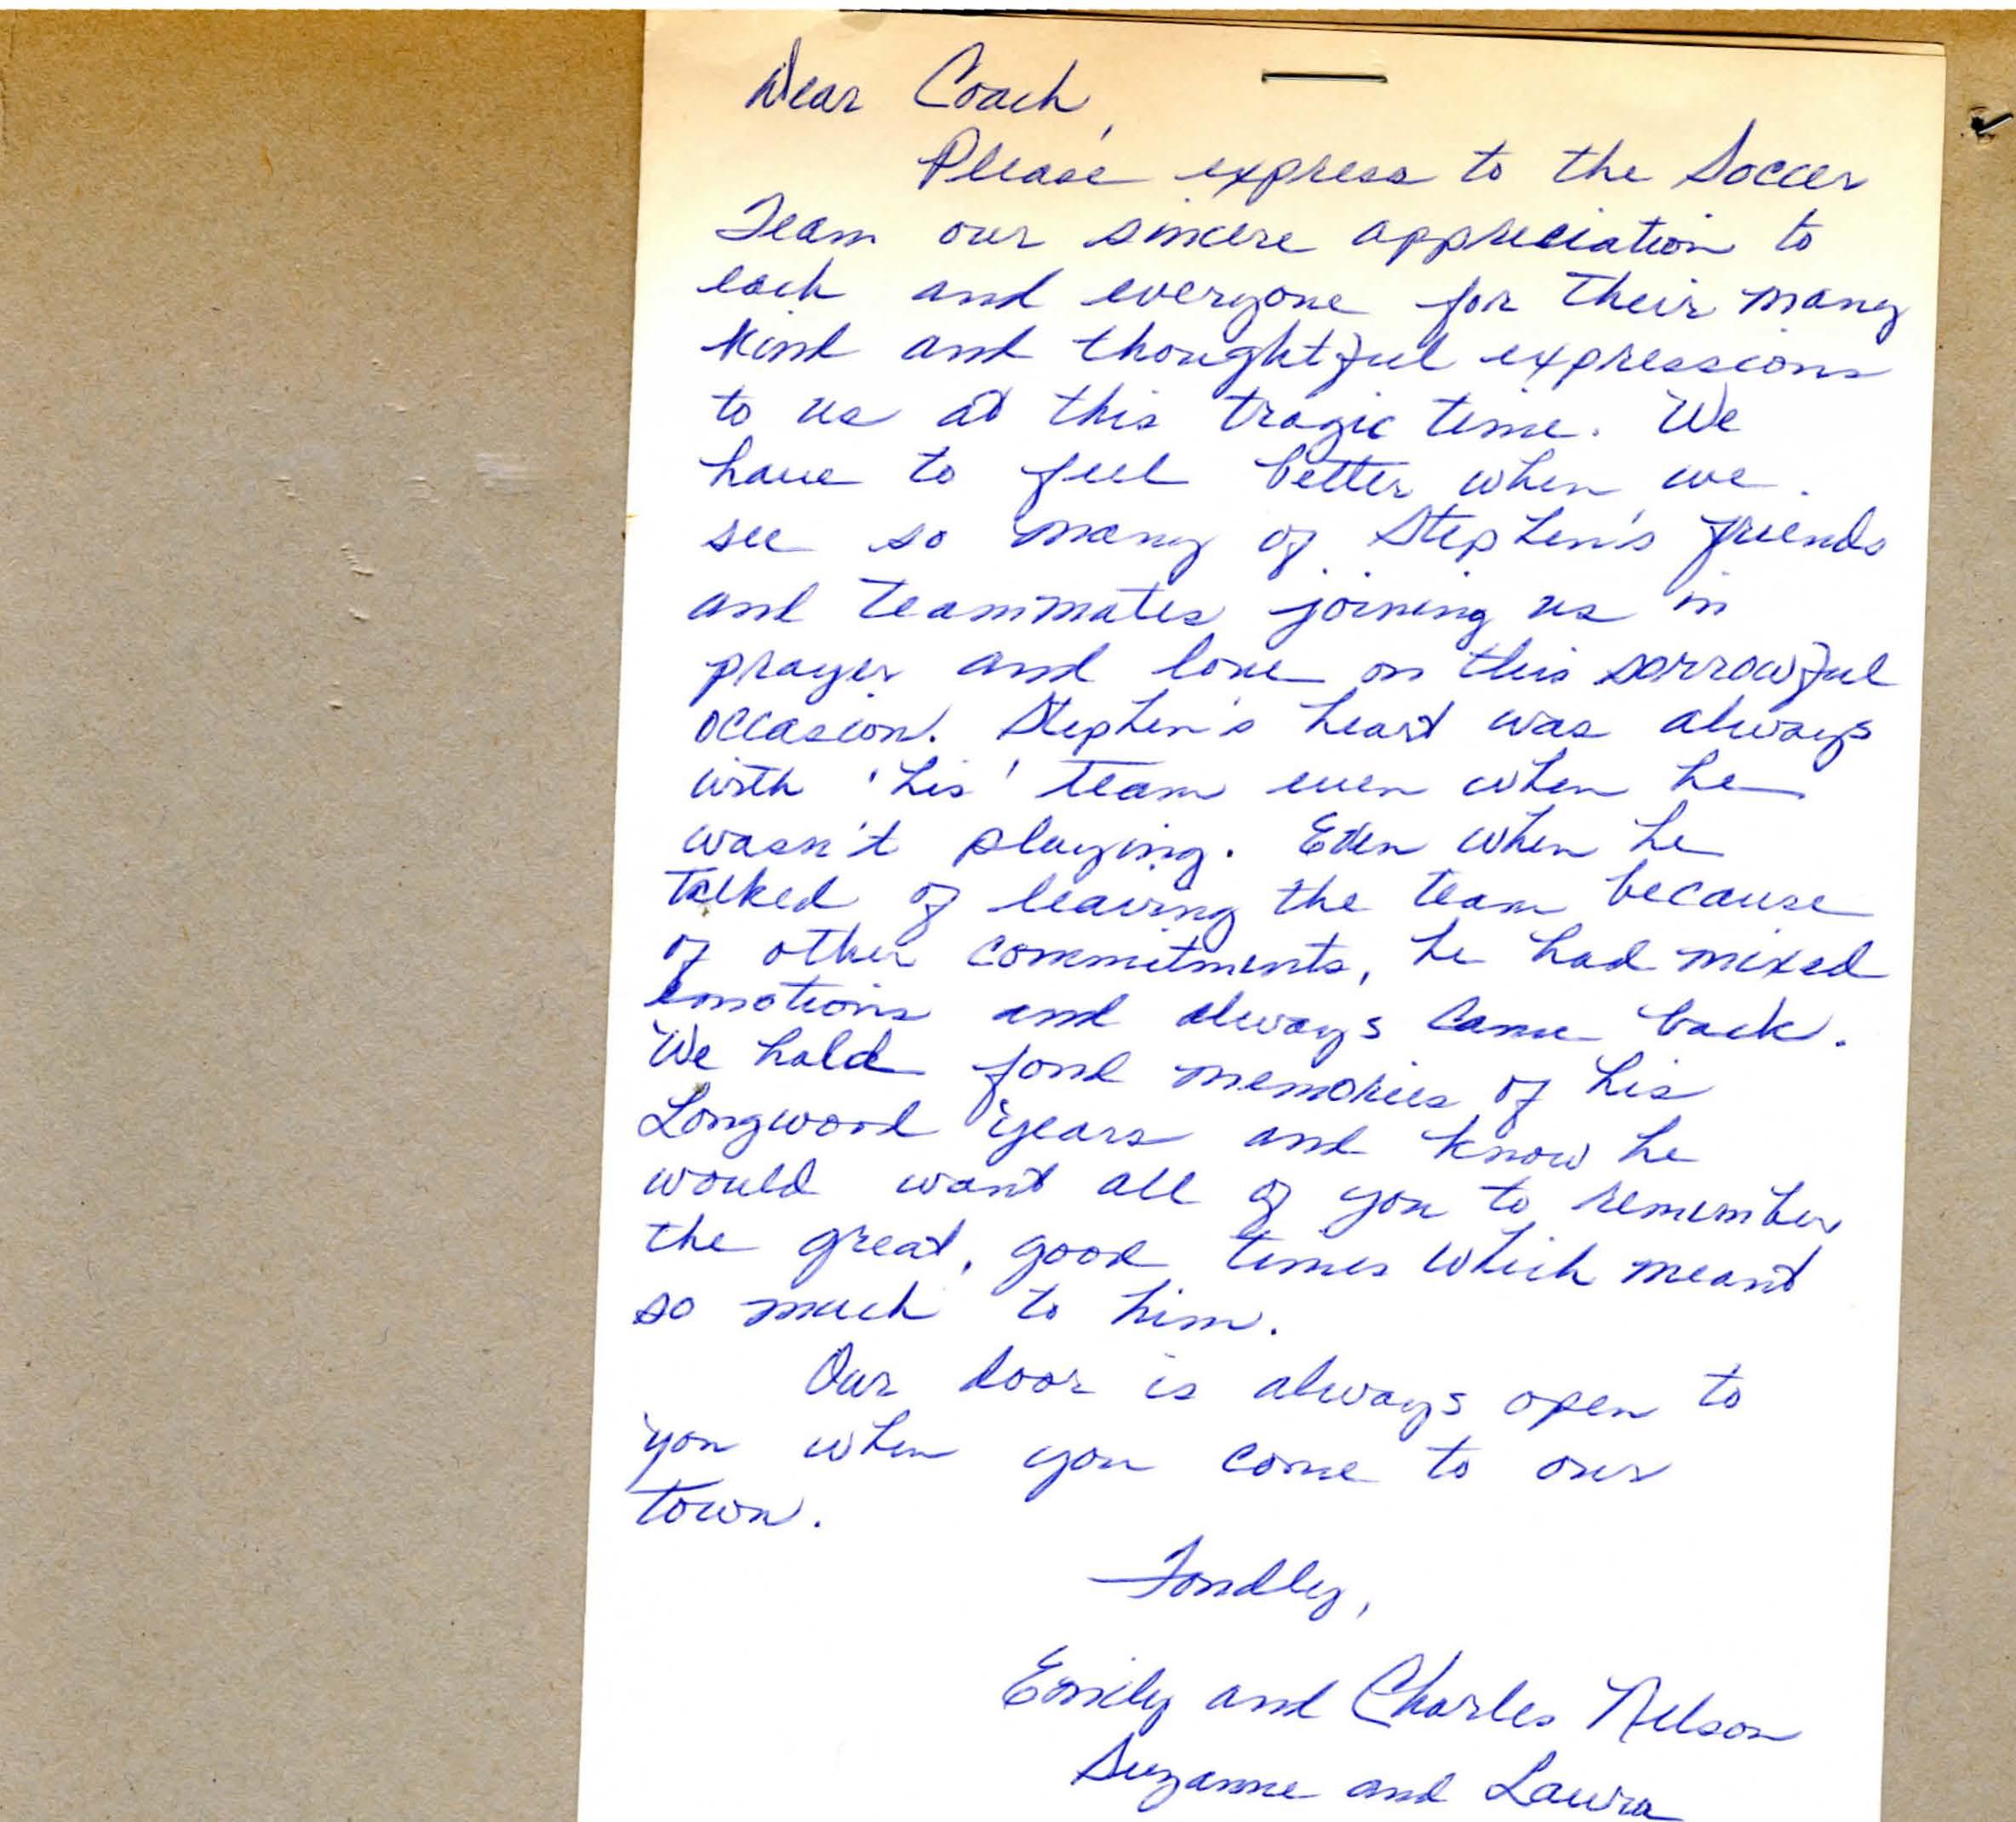 Dear Coach,
Please express to the Soccer
Team our sincere appreciation to
each and everyone for their many
kind and thoughtful expressions
to us at this tragic time. We
have to feel better when we
see so many of Stephen's friends
and teammates joining us in
prayer and love on this sorrowful
occasion. Stephen's heart was always
with 'his' team even when he
wasn't playing. Even when he
talked of leaving the team because
of other commitments, he had mixed
emotions and always came back.
We hold fond memories of his
Longwood years and know he
would want all of you to remember
the great, good times which meant
so much to him.
Our door is always open to
you when you come to our
town.
Fondly,
Emily and Charles Nelson
Suzanne and Laura